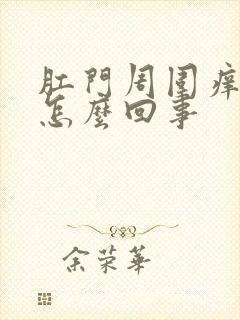 肛門周圍癢
怎麼回事
余荣華